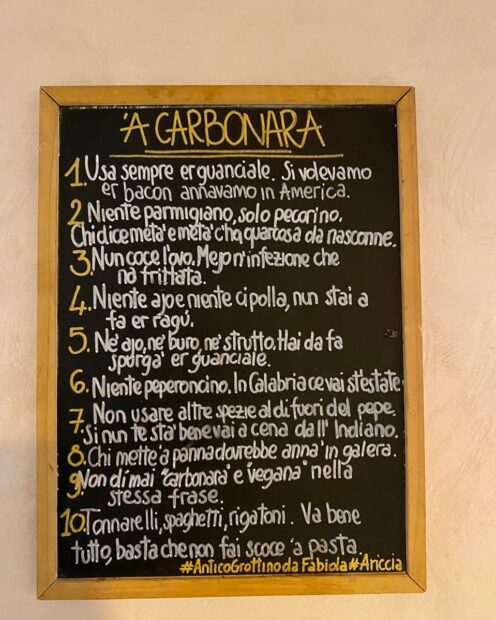 'A CARBONARA
1. Usa sempre er guanciale. Si volevamo
er bacon annavamo in America.
2. Niente parmigiano, solo pecorino.
Chi dice metà e metà c'ha quarcosa da nasconne.
3. Nun coce l'ovo. Mejo n'infezione che
na frittata.
4. Niente ajo e niente cipolla, nun stai a
fa er ragú.
5. Né ajo, né buro, né strutto. Hai da fa
spurgà er guanciale.
6. Niente peperoncino. In Calabria ce vai st'estate
7. Non usare altre spezie al di fuori del pepe.
Si nun te sta bene vai a cena dall'Indiano.
8. Chi mette a panna dovrebbe annà in galera.
9. Non di mai "carbonara" e "vegana" nella
stessa frase.
10. Tonnarelli, spaghetti, rigatoni. Va bene
tutto, basta che non fai scoce 'a pasta.
#AnticoGrottino da Fabiola #Ariccia